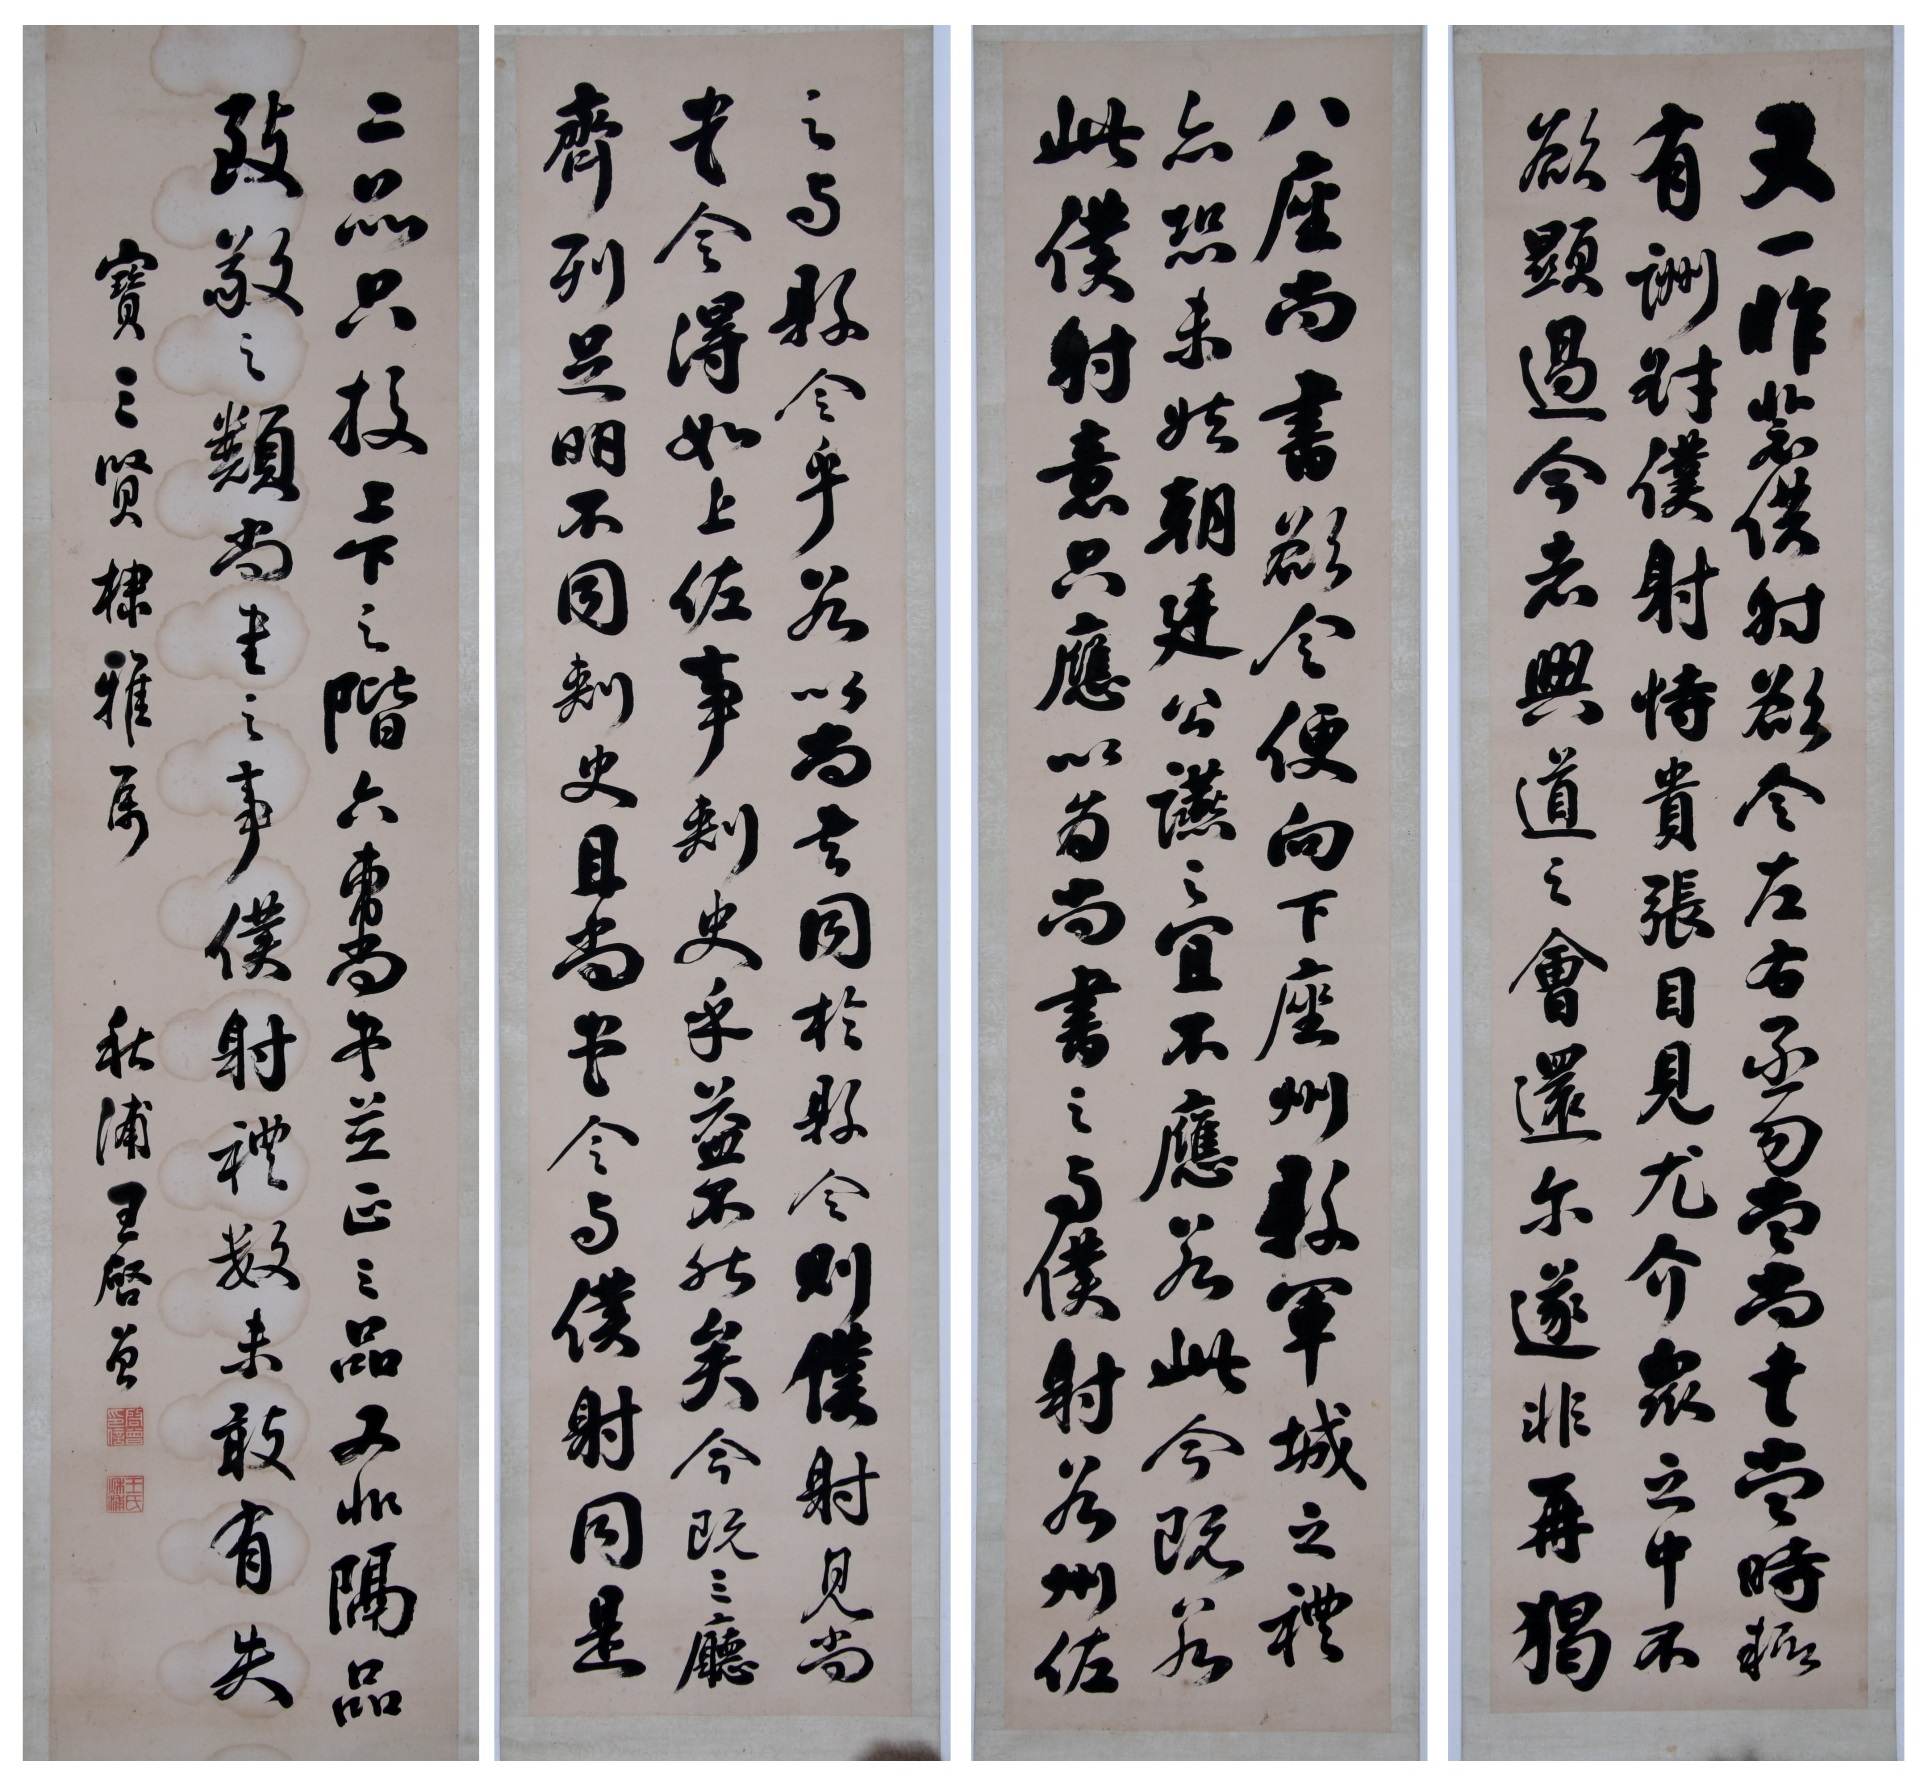 又一昨裴僕射欲令左右丞勿當尚書當時輒
有酬對僕射恃貴張目見尤介衆之中不
欲顯過今者興道之會還尔遂非再猲
八座尚書欲令便向下座州縣軍城之禮
亦恐未然朝廷公讌之宜不應若此今既若
此僕射意只應以為尚書之与僕射若州佐
之与縣令乎若以尚書同於縣令則僕射見尚
書令得如上佐事刺史乎益不然矣今既三廳
齊列足明不同刺史且尚書令与僕射同是
二品只校上下之階六曹尚書並正三品又非隔品
致敬之類尚書之事僕射禮數未敢有失
寶三賢棣雅属 秋浦王啓曾
啓曾印信
王氏秋浦